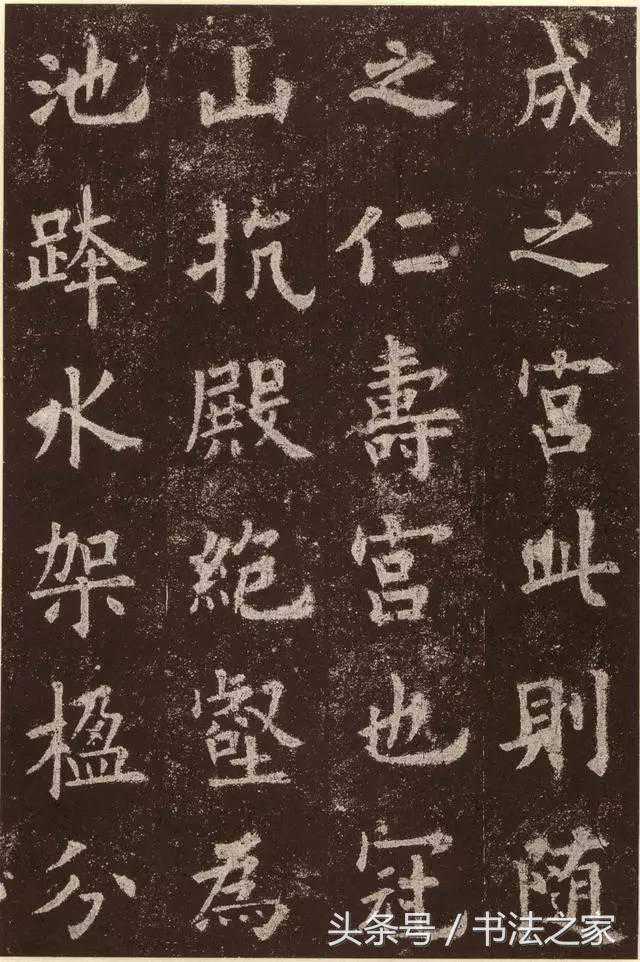 成之宫此則随
之仁壽宫也冠
山抗殿絶壑為
池跨水架楹分
头条号 / 书法之家